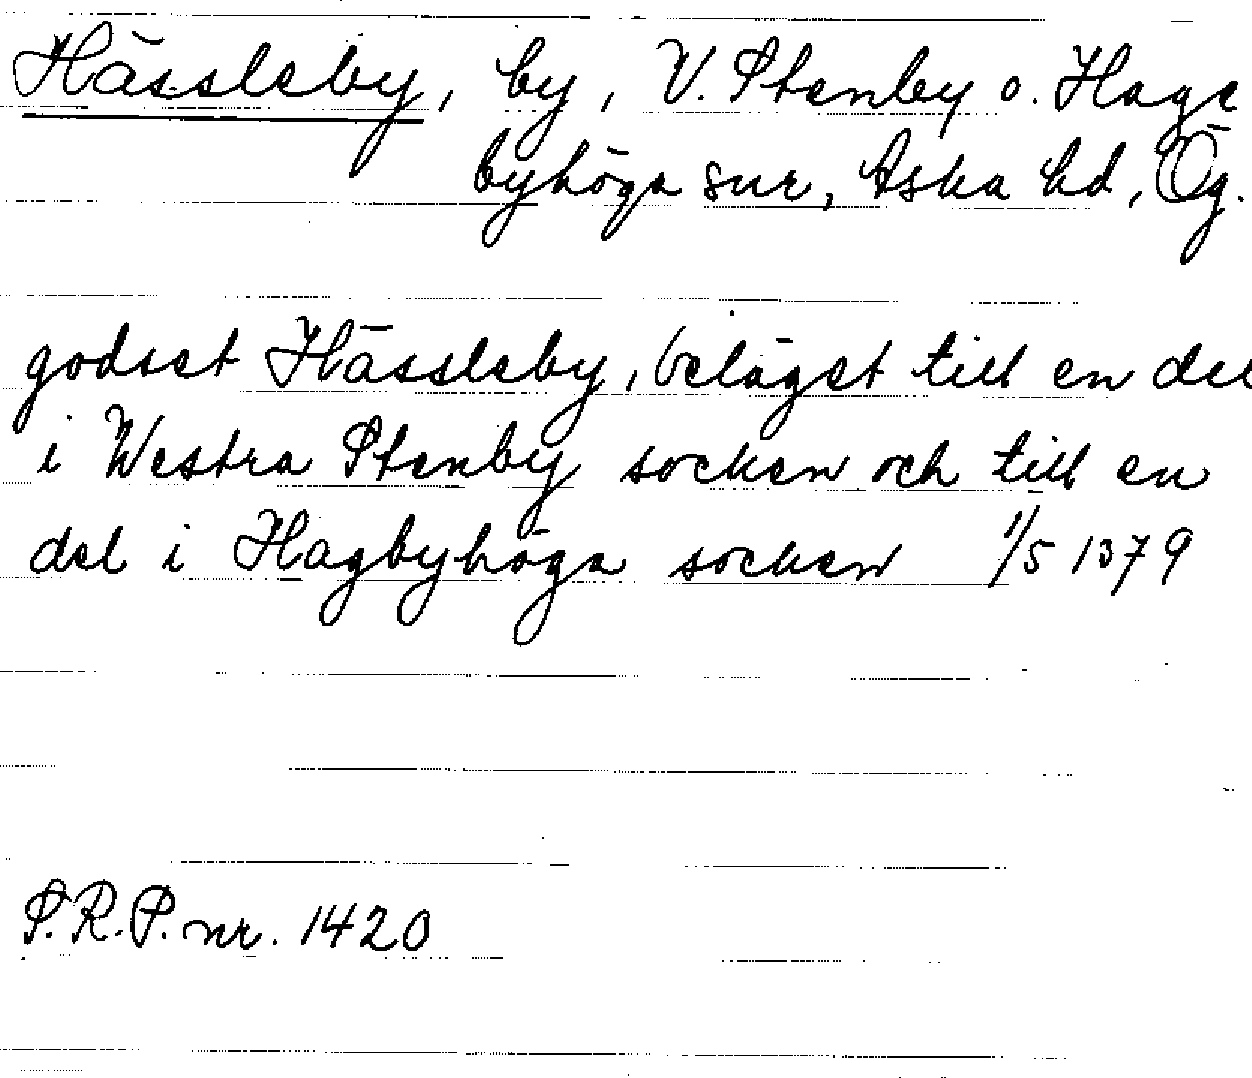 Hässleby, by, V. Stenby o. Hage
byhöga snr, Aska hd, Ög.
godset Hässleby, beläget till en del
i Westra Stenby socken och till en
del i Hagbyhöga socken 1/5 1379
S.R.P. nr. 1420